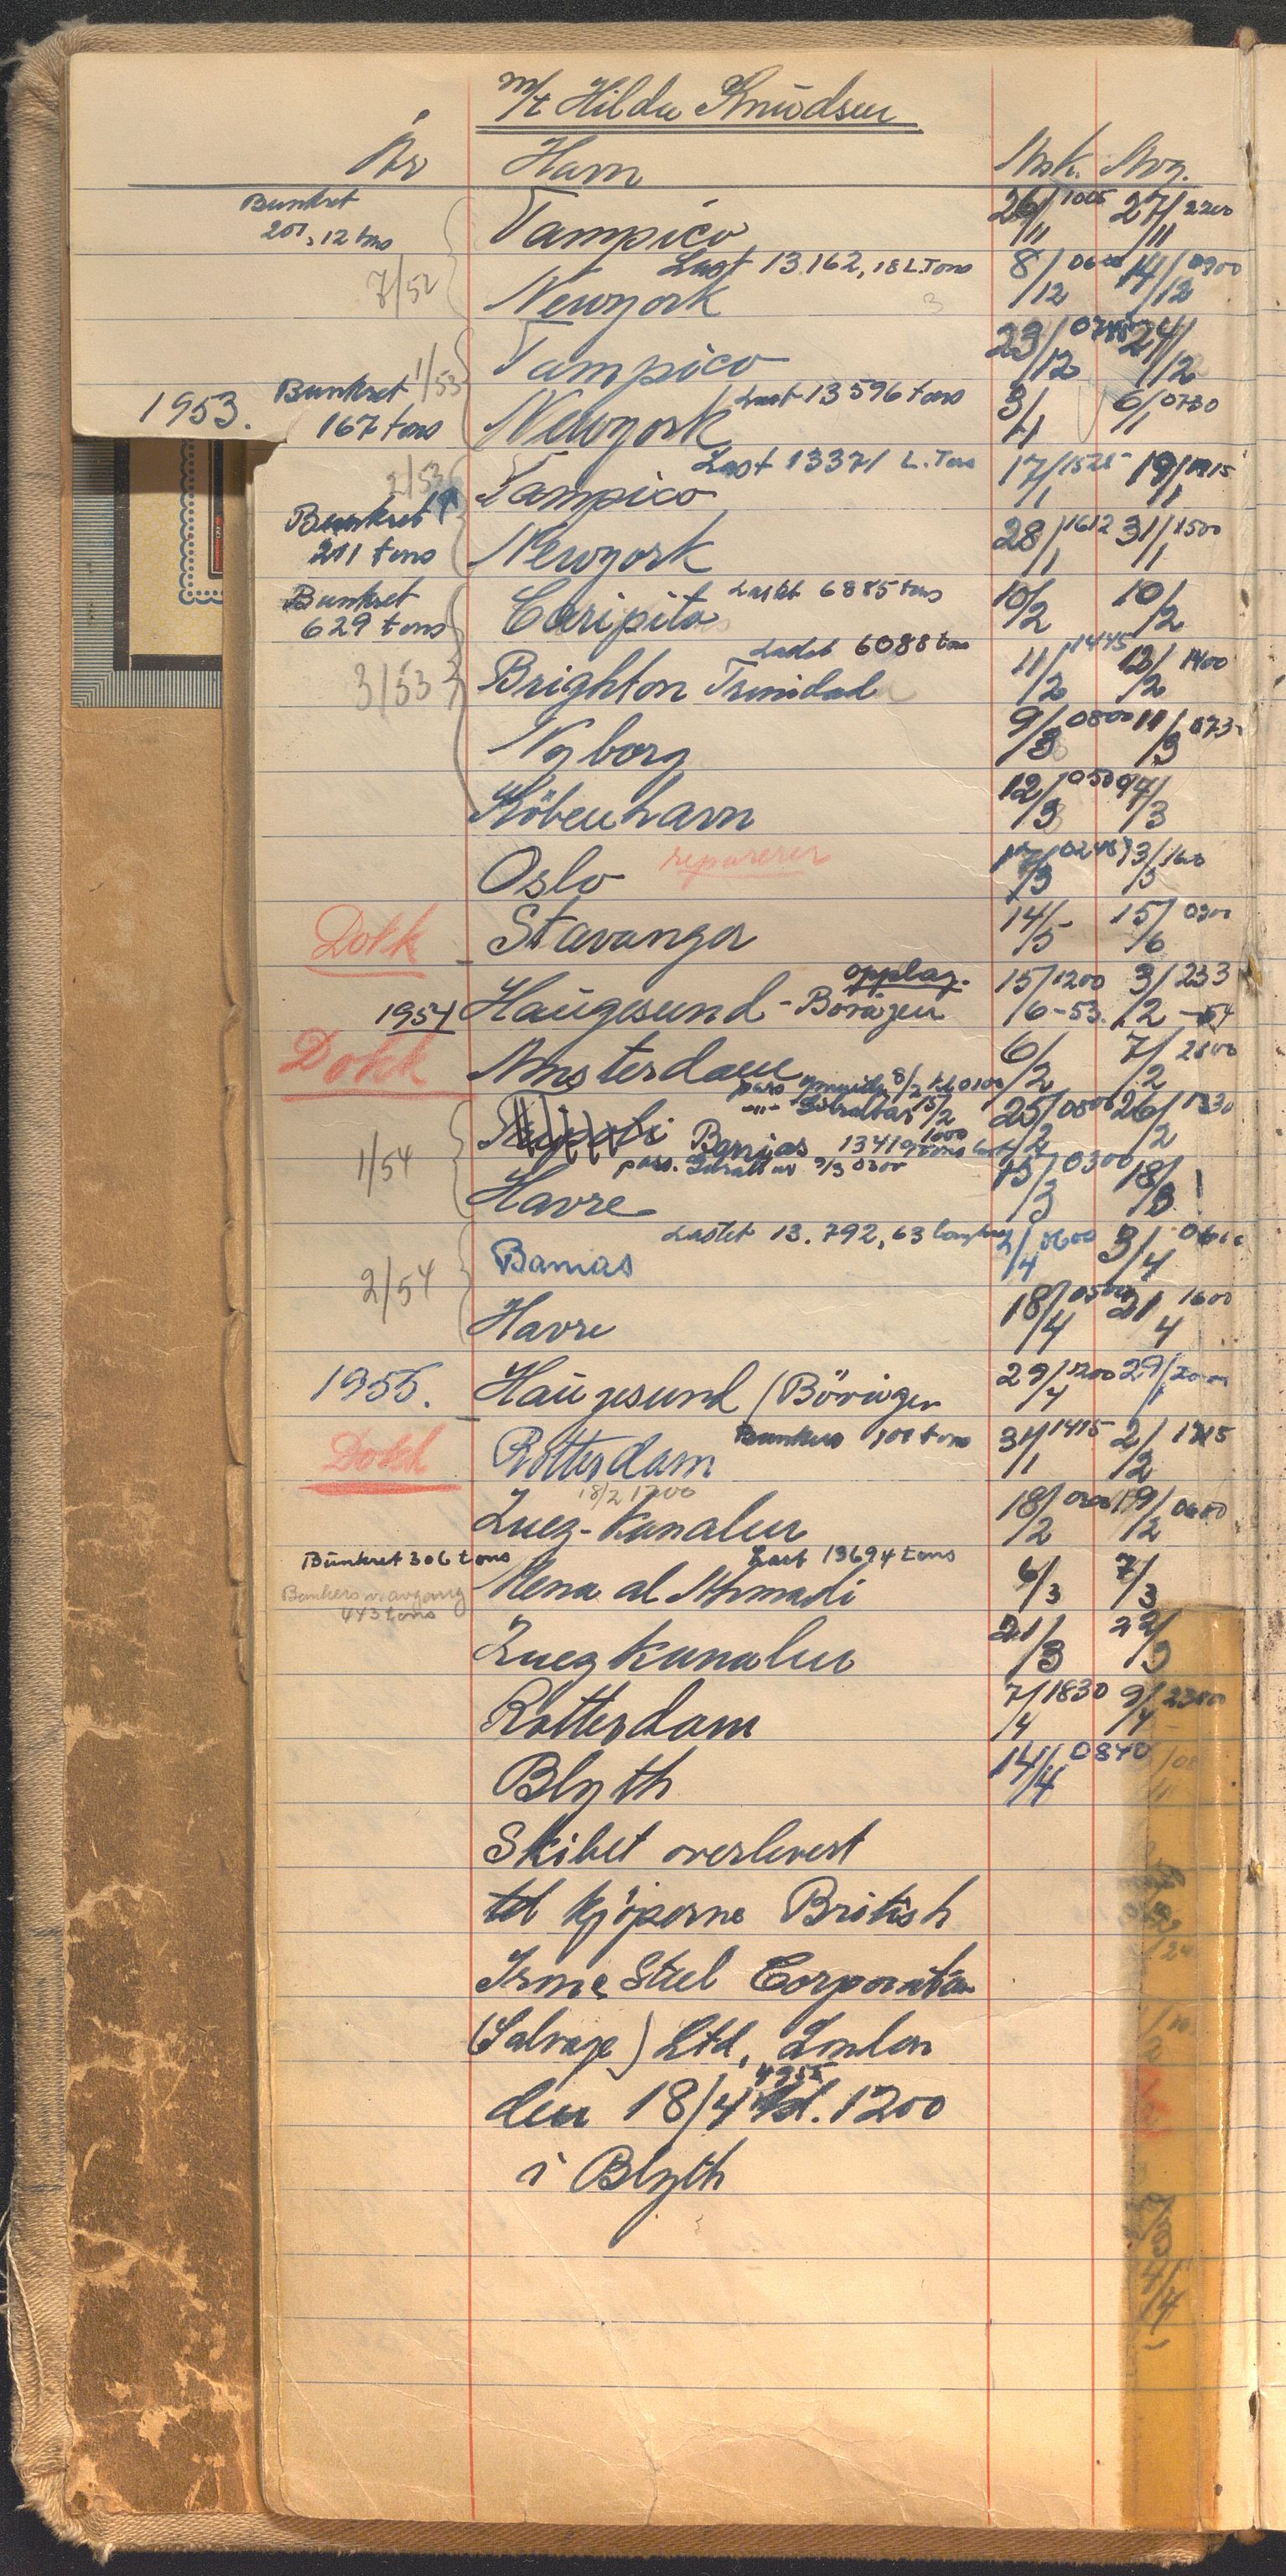 m/t Hilda Knudsen
År Havn Ank. Avg.
Bunkret
201,12 tons
7/52
Tampico 26/11 1005 27/11 2200
Last 13.162,18 L.Tons
Newyork 8/12 14/12 0900
1/53
Tampico 23/12 24/12
Last 13596 tons
1953. Bunkret
167 tons
Newyork 3/1 6/1 0730
Last 13371 L.Tons
2/53
Tampico 17/1 1525 19/1
Bunkret
211 tons
Newyork 28/1 1612 31/1 1500
Bunkret
629 tons
Lastet 6885 tons
Caripito 10/2 10/2
Ladet 6088 tons
3/53
Brighton Trinidad 11/2 1445 12/2 1400
Nyborg 9/3 0800 11/3
Köbenhavn 12/3
Oslo reparerer 13/5
Dokk
Stavanger 14/5 15/6
opplag.
1954 Haugesund - Boräyen 15/6-53 1200 3/2-54
Dokk
Amsterdam 6/2 7/2
pass Ymuiden 8/2
-"- Gibraltar 15/2
1/54
Banias 13419 tons 25/2 26/2
pass. Gibraltar 9/3 0300
Havre 15/3 0300 18/3
Lastet 13.792,63 longtons
2/54
Banias 2/4 0600 3/4
Havre 18/4 21/4 1600
1955. Haugesund (Böröyen 29/1
Bunkers 100 tons
Dokk
Rotterdam 31/1 1415 2/2
18/2 1200
Zuez-Kanalen 18/2 19/2 0600
Bunkret 306 tons Last 13694 tons
Bunkers v. avgang
443 tons
Mena al Ahmadi 6/3 7/3
Zuez Kanalen 21/3 22/3
Rotterdam 7/4 1830 9/4
Blyth 14/4 0840
Skibet overlevert
til kjöperne British
Irone Steel Corporation
(Salvage) Ltd, London
den 18/4 1955 kl. 1200
i Blyth